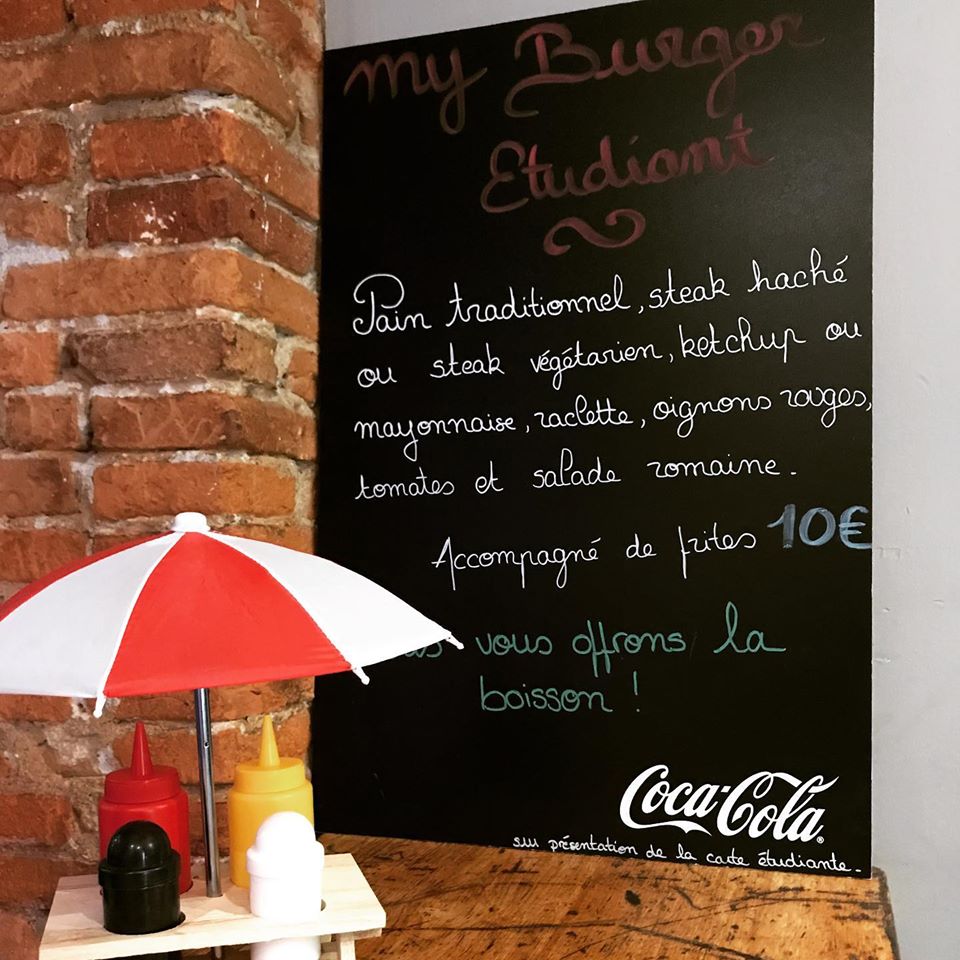 my Burger
Etudiant
Pain traditionnel, steak haché
ou steak végétarien, ketchup ou
mayonnaise, raclette, oignons rouges,
tomates et salade romaine.
Accompagné de frites 10€
vous offrons la
boisson !
Coca-Cola
sur présentation de la carte étudiante.